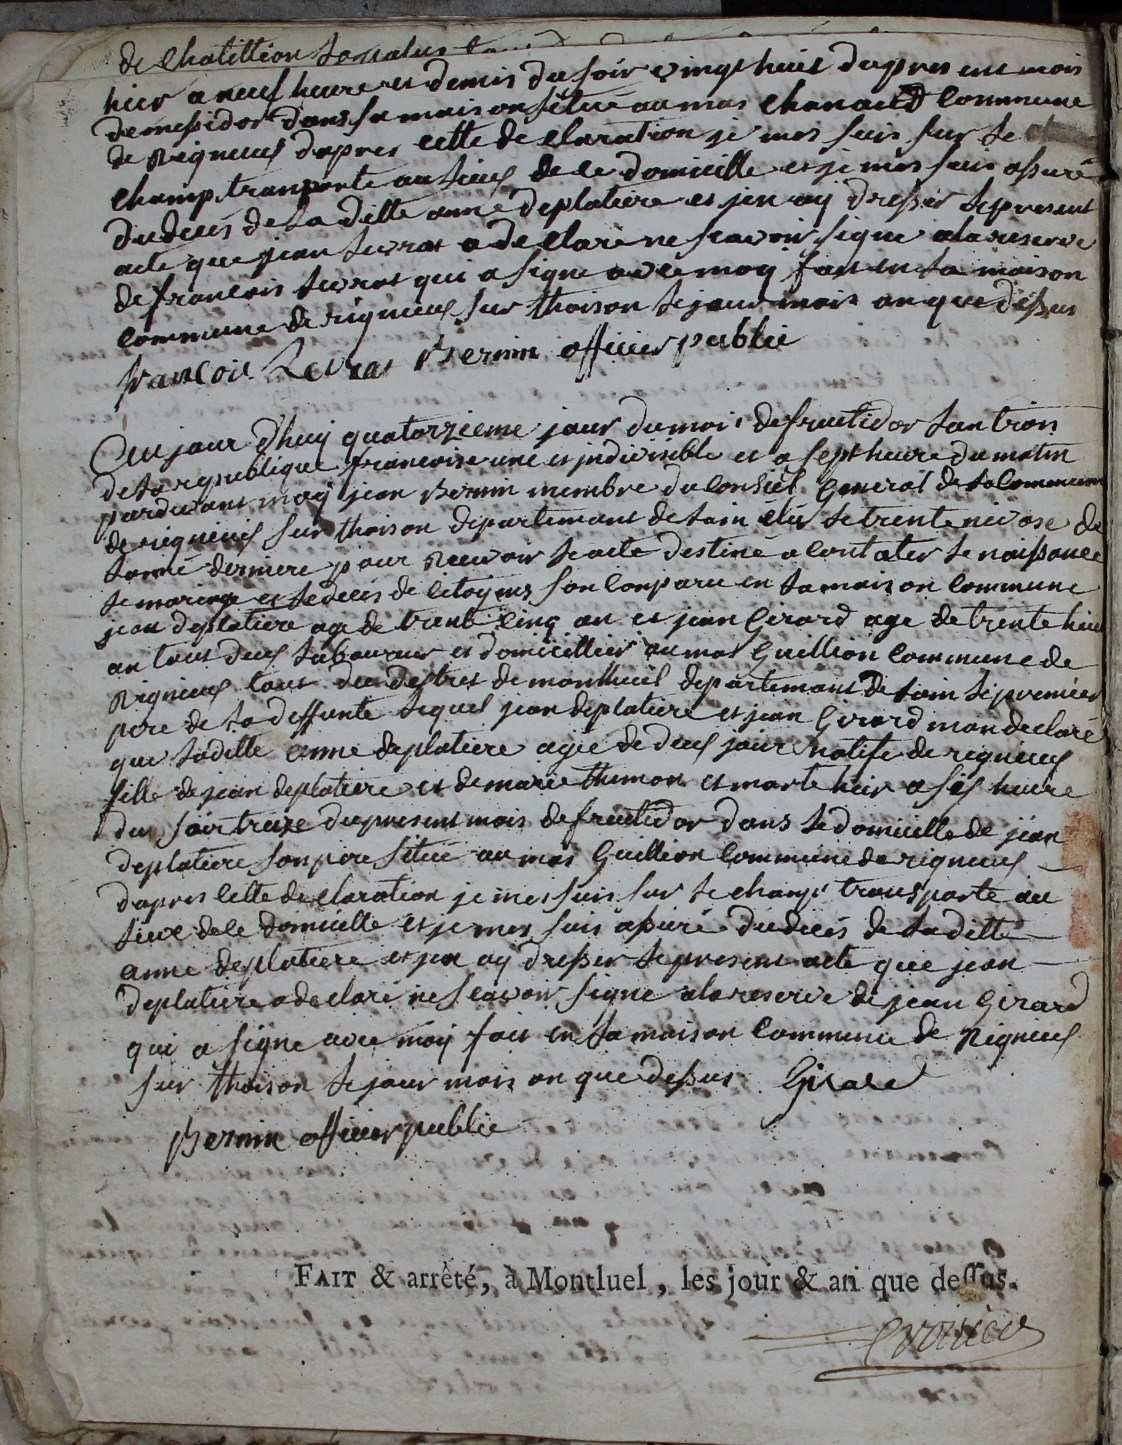 de Chatillion
hier a neuf heure et demis du soir vingt huit du pres ent mois
de messidor dans sa maison situé au mas Chanard Commune
de Rigneus d'apres cette de claration je mes suis sur le
champ transporte au lieus de le domicille et je mes suis assuré
du décés de la ditte anne deplatiere et jen aij dresser le present
acte que jean levrat a de claré ne scavoir signe a la reserve
de francois levrat qui a signe avec moy fait en la maison
commune de rigneus sur thoison le jour mois an que dessus
francois Levrat Bernin officier public
Cejour d'huy quatorzieme jour du mois de fructidor l'an trois
de la republique francoise une et jndivisible et a sept heure du matin
pardevant moy jean Bernin membre du Conseil General de la Commune
de rigneus sur thoison departement de l'ain élu le trente nivose de
l'anné derniere pour recevoir le acte destiné a contater le naissance
le mariage et le décés de citoyens son comparu en la maison Commune
jean deplatiere age de trente cinq an et jean Girard age de trente huit
an tous deus laboureur et domicillier au mas Guillion Commune de
Rigneus tous deu destret de montluel departement de l'ain le premier
pere de la deffunte lequel jean deplatiere et jean Girard mon declaré
que ladille anne deplatiere agée de deus jour natife de rigneus
fille de jean deplatiere et de marie thimon et morte hier a sis heure
du soir treize du present mois de fructidor dans le domicille de jean
deplatiere son pere situé au mas Guillion Commune de rigneus
d'apres cette de claration je mes suis sur le champ transporte au
lieu de le domicille et je mes suis assuré du décés de ladille
anne deplatiere et jen aij dresser le present acte que jean
deplatiere a declaré ne scavoir signe a la reserve de jean Girard
qui a signe avec moy fait en la maison Commune de Rigneus
sur thoison le jour mois an que dessus Girard
Bernin officier public
FAIT & arrêté, à Montluel, les jour & an que dessus.